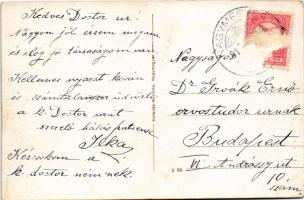 Kedves Doctor úr!
Nagyon jól érzem magam
és elég jó társaságom van.
Kellemes nyarat kíván
és számtalanszor üdvözli
a k. Doctor urat
szerető hálás patiense
Ika
Kézcsókom a
k. doctor néninek.
NAGYMA
Nagyságos
Dr. Ernő
orvostudor urnak
Budapest
VI. Andrássy ut
10 szám.